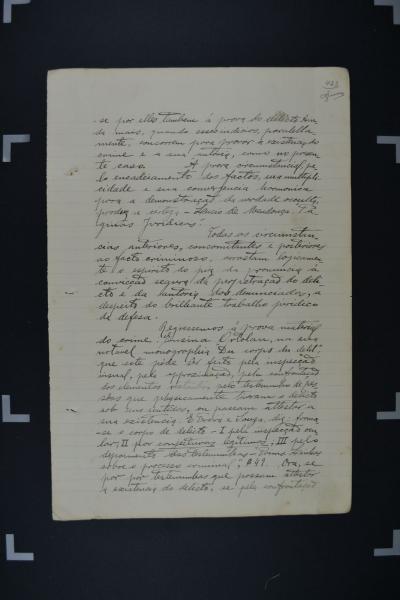 -se por elles tambem á prova do delicto. Ain-
da mais, quando esses indicios, parallela-
mente, concorrem para provar a existencia do
crime e a sua autoria, como no presen-
te caso. A prova circumstancial, pe-
lo encadeiamento dos factos, sua multipli-
cidade e sua convergencia harmonica
para a demonstração da verdade occulta,
produz a certeza - Lucio de Mendonça - Pa-
ginas Juridicas".
Todas as circumstan-
cias anteriores, concomitantes e posteriores
ao facto criminoso, arrastam logicamen-
te o espirito do juiz da pronuncia á
convicção segura da perpetração do deli-
cto e da autoria dos denunciados, a
despeito do brilhante trabalho juridico
da defesa.
Regressemos á prova material
do crime. Ensina Ortolan, na sua
notavel monographia Du corps du delit,
que este póde ser feito pela inspecção
visual, pela approximação, pela confrontação
dos elementos pelo testemunho de pes-
soas que physicamente viram o delicto
sob seus indicios, ou possam attestar a
sua existencia. E Pereira e Souza, diz: forma-
-se o corpo de delicto - I pela inspecção ocu-
lar; II por conjecturas legitimas; III pelo
depoimento das testemunhas - Linhas
sobre o processo criminal, § 49. Ora, se
por testemunhas que possam attestar
a existencia do delicto, se pela confrontação